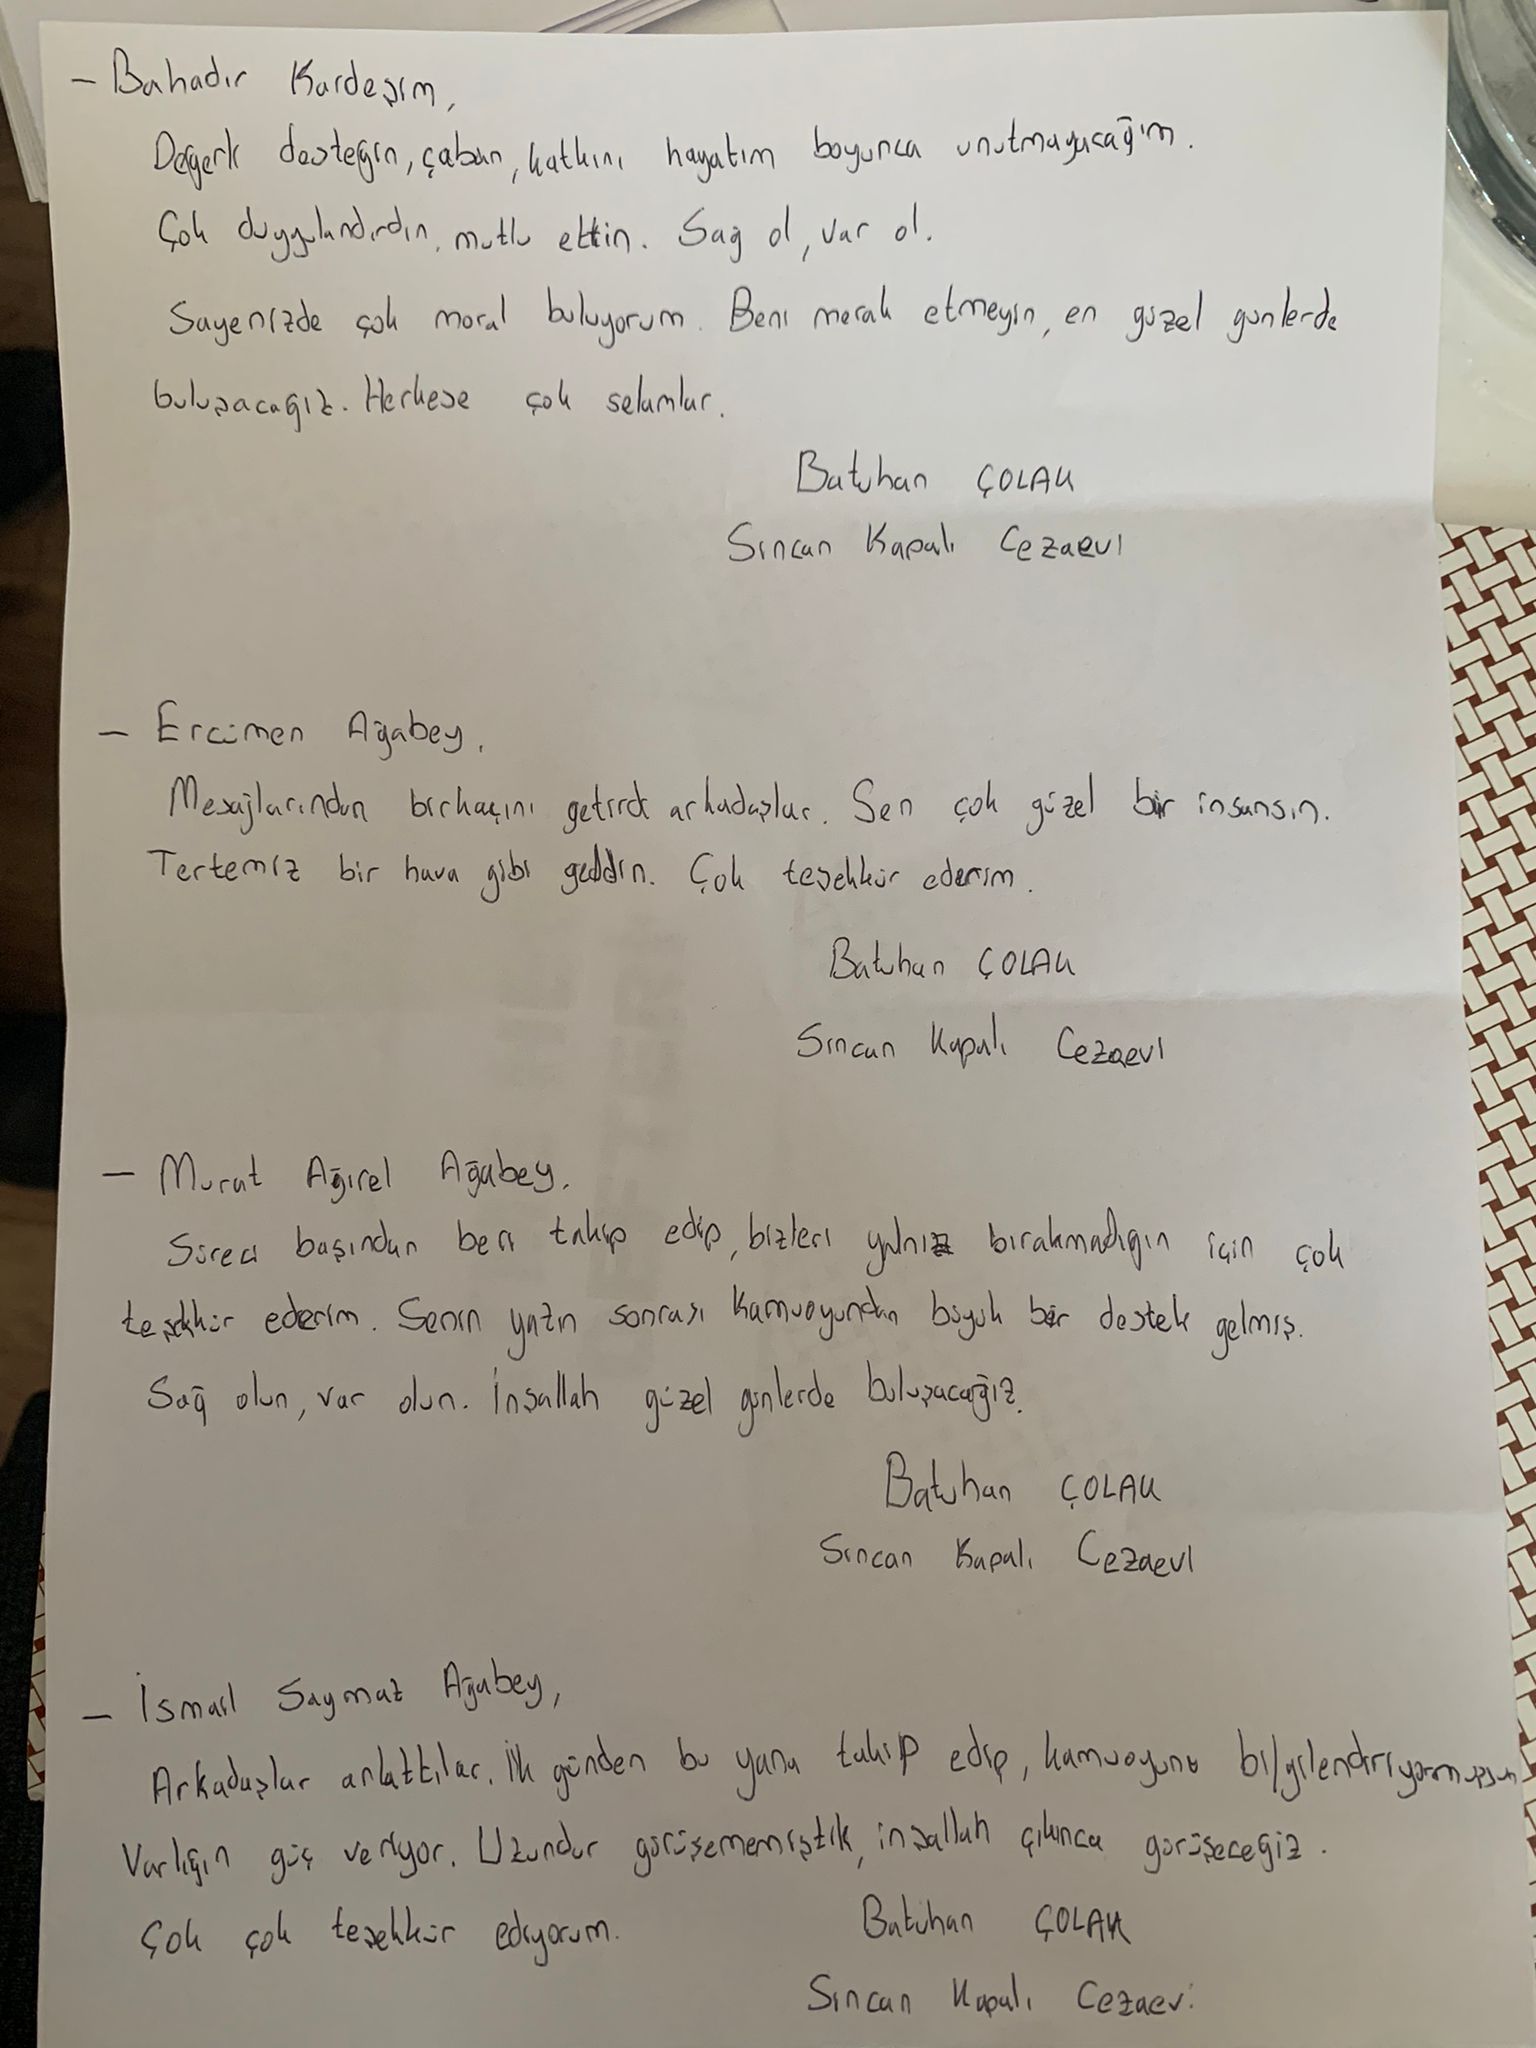 - Bahadır Kardeşim,
Değerli desteğin, çaban, katkını hayatım boyunca unutmayacağım.
Çok duygulandırdın, mutlu ettin. Sağ ol, var ol.
Sayenizde çok moral buluyorum. Beni merak etmeyin, en güzel günlerde
buluşacağız. Herkese çok selamlar.
Batuhan ÇOLAK
Sincan Kapalı Cezaevi
- Ercümen Ağabey,
Mesajlarından birkaçını getirdi arkadaşlar. Sen çok güzel bir insansın.
Tertemiz bir hava gibi geldin. Çok teşekkür ederim.
Batuhan ÇOLAK
Sincan Kapalı Cezaevi
- Murat Ağırel Ağabey,
Süreci başından beri takip edip, bizleri yalnız bırakmadığın için çok
teşekkür ederim. Senin yazın sonrası kamuoyundan büyük bir destek gelmiş.
Sağ olun, var olun. İnşallah güzel günlerde buluşacağız.
Batuhan ÇOLAK
Sincan Kapalı Cezaevi
- İsmail Saymaz Ağabey,
Arkadaşlar anlattılar. İlk günden bu yana takip edip, kamuoyunu bilgilendiriyormuşsun
Varlığın güç veriyor. Uzundur görüşememiştik, inşallah çıkınca görüşeceğiz.
Çok çok teşekkür ediyorum.
Batuhan ÇOLAK
Sincan Kapalı Cezaevi